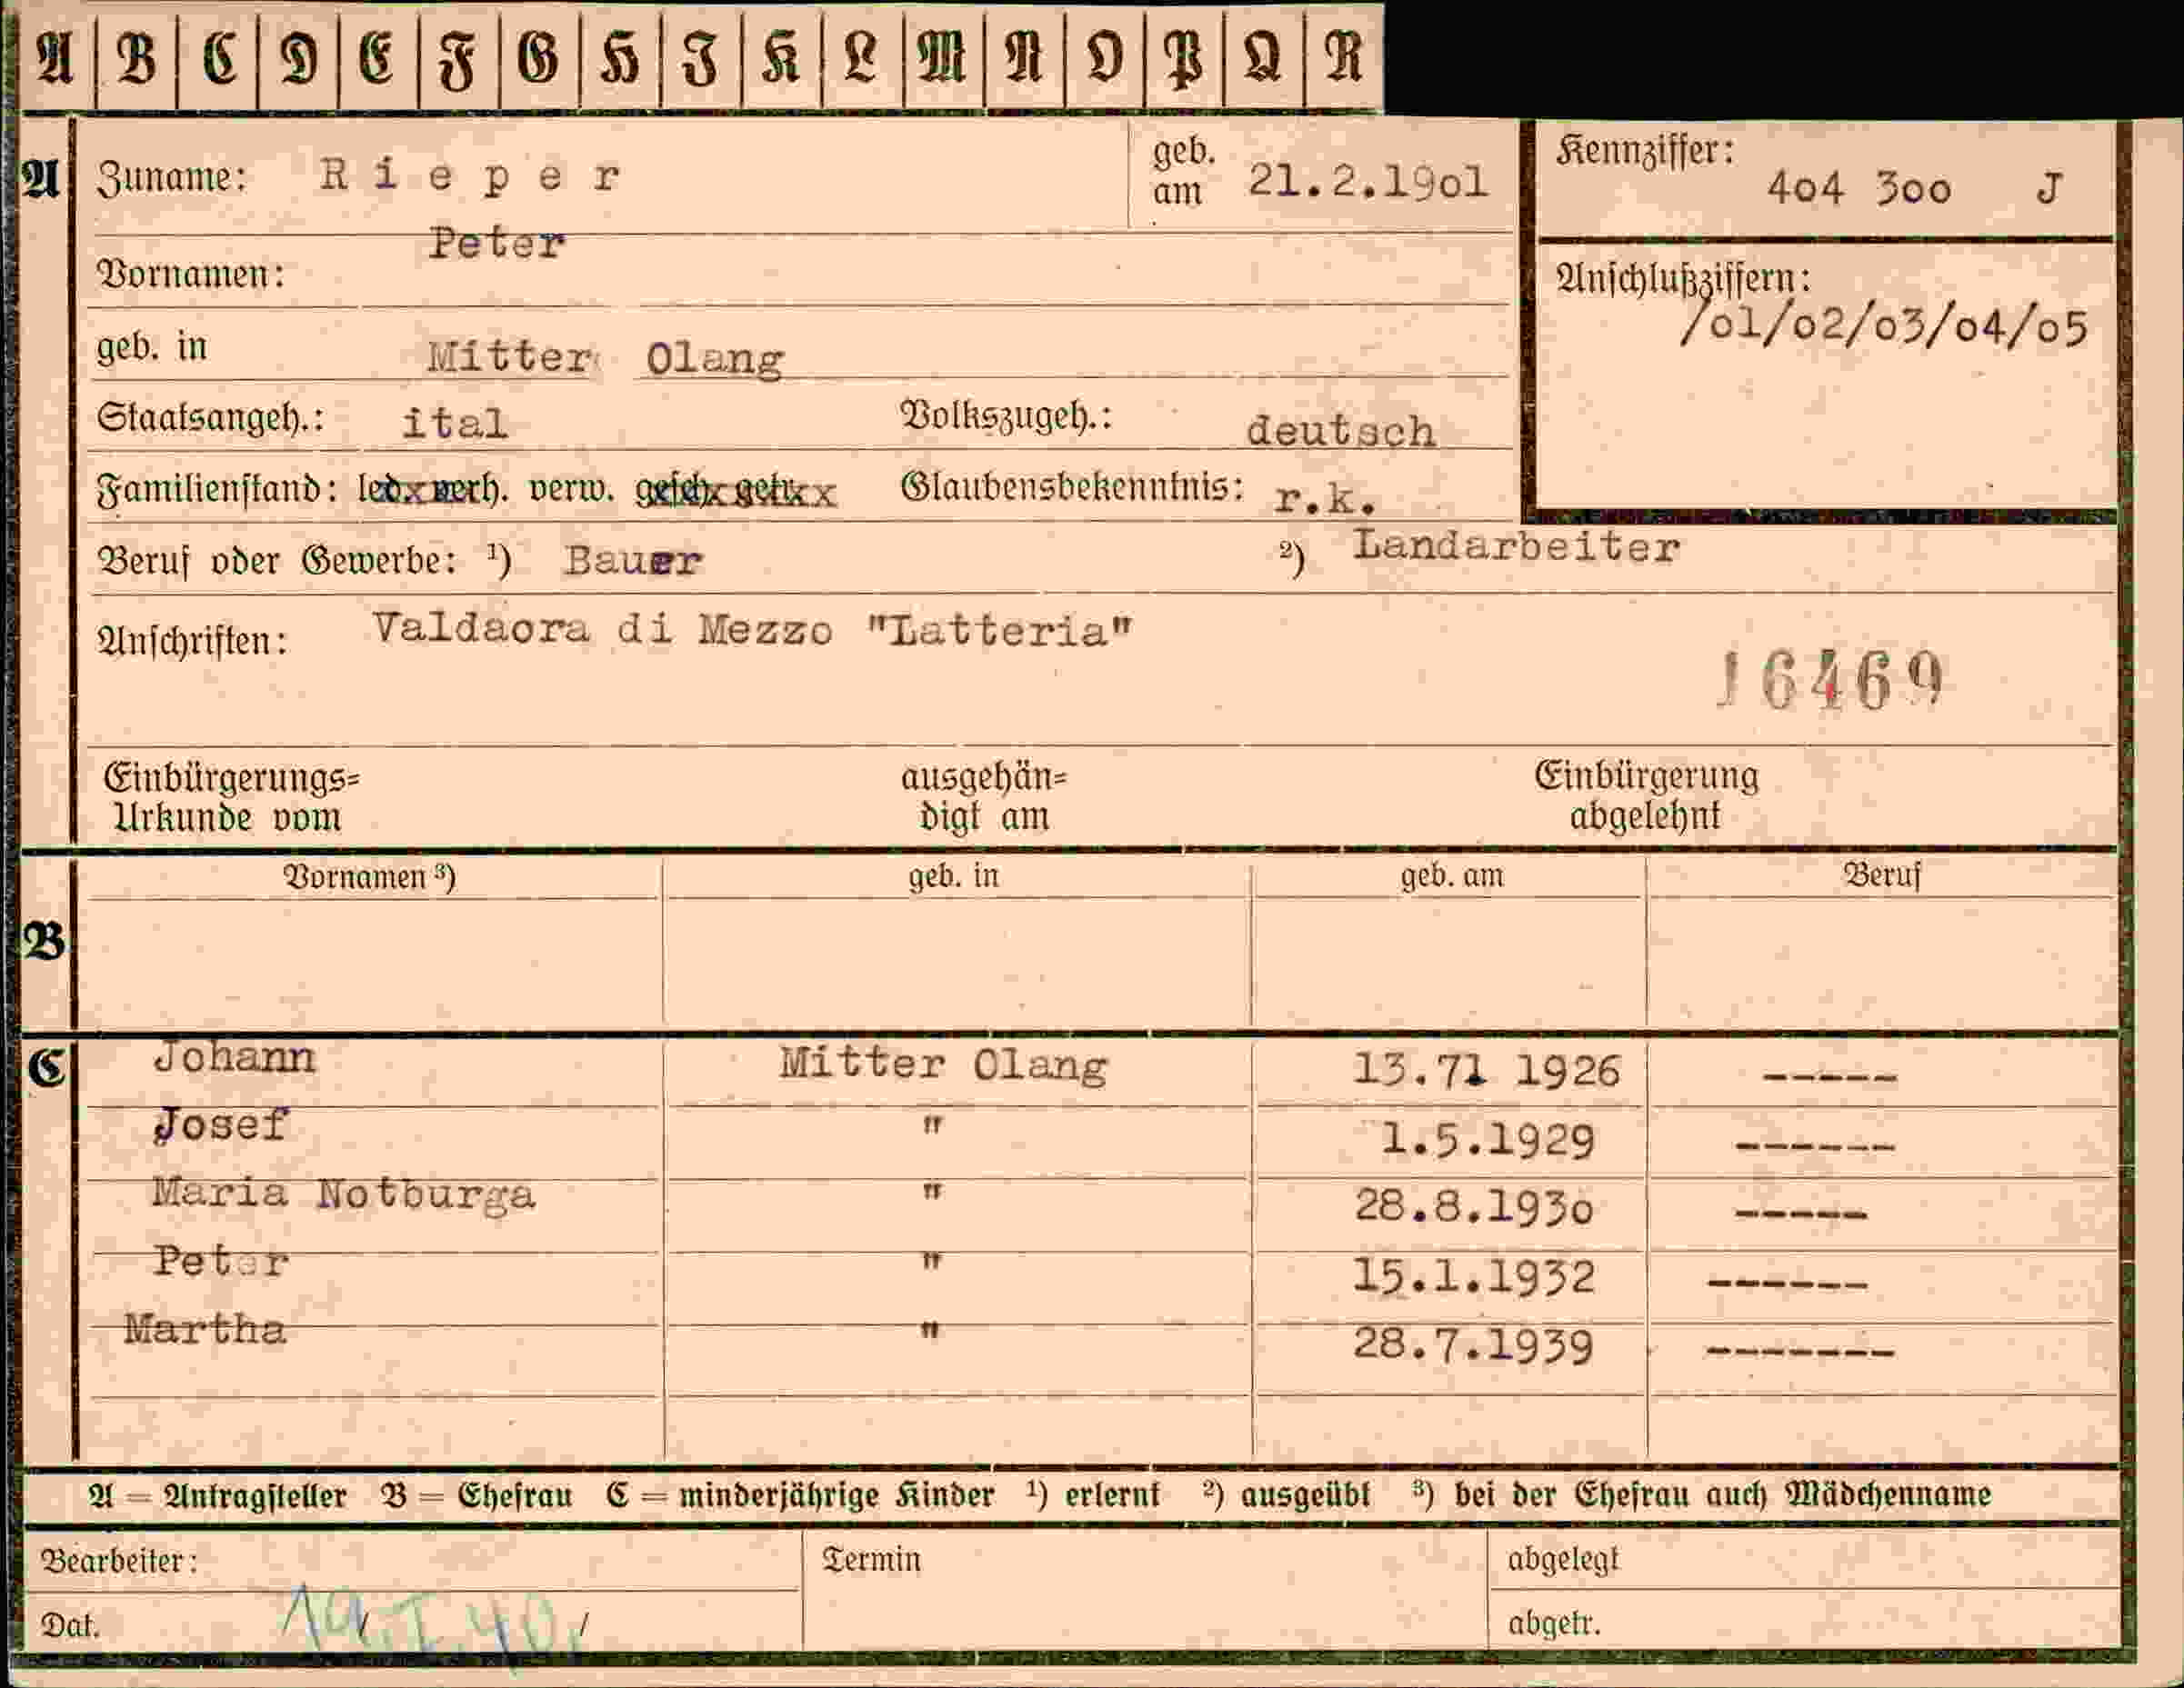 A B C D E F G H I K L M N O P Q R
A Zuname: Rieper geb. am 21.2.19o1 Kennziffer: 4o4 3oo J
Vornamen: Peter Anschlußziffern:
/o1/o2/o3/o4/o5
geb. in Mitter Olang
Staatsangeh.: ital Volkszugeh.: deutsch
Familienstand: led. verh. verw. gesch. getr. Glaubensbekenntnis: r.k.
Beruf oder Gewerbe: ¹) Bauer ²) Landarbeiter
Anschriften: Valdaora di Mezzo "Latteria"
16469
Einbürgerungs= ausgehän= Einbürgerung
Urkunde vom digt am abgelehnt
Vornamen ³) geb. in geb. am Beruf
B
C Johann Mitter Olang 13.71 1926 -----
Josef " 1.5.1929 ------
Maria Notburga " 28.8.193o -----
Peter " 15.1.1932 ------
Martha " 28.7.1939 -------
A = Antragsteller B = Ehefrau C = minderjährige Kinder ¹) erlernt ²) ausgeübt ³) bei der Ehefrau auch Mädchenname
Bearbeiter: Termin abgelegt
Dat. 19. I. 40. abgetr.